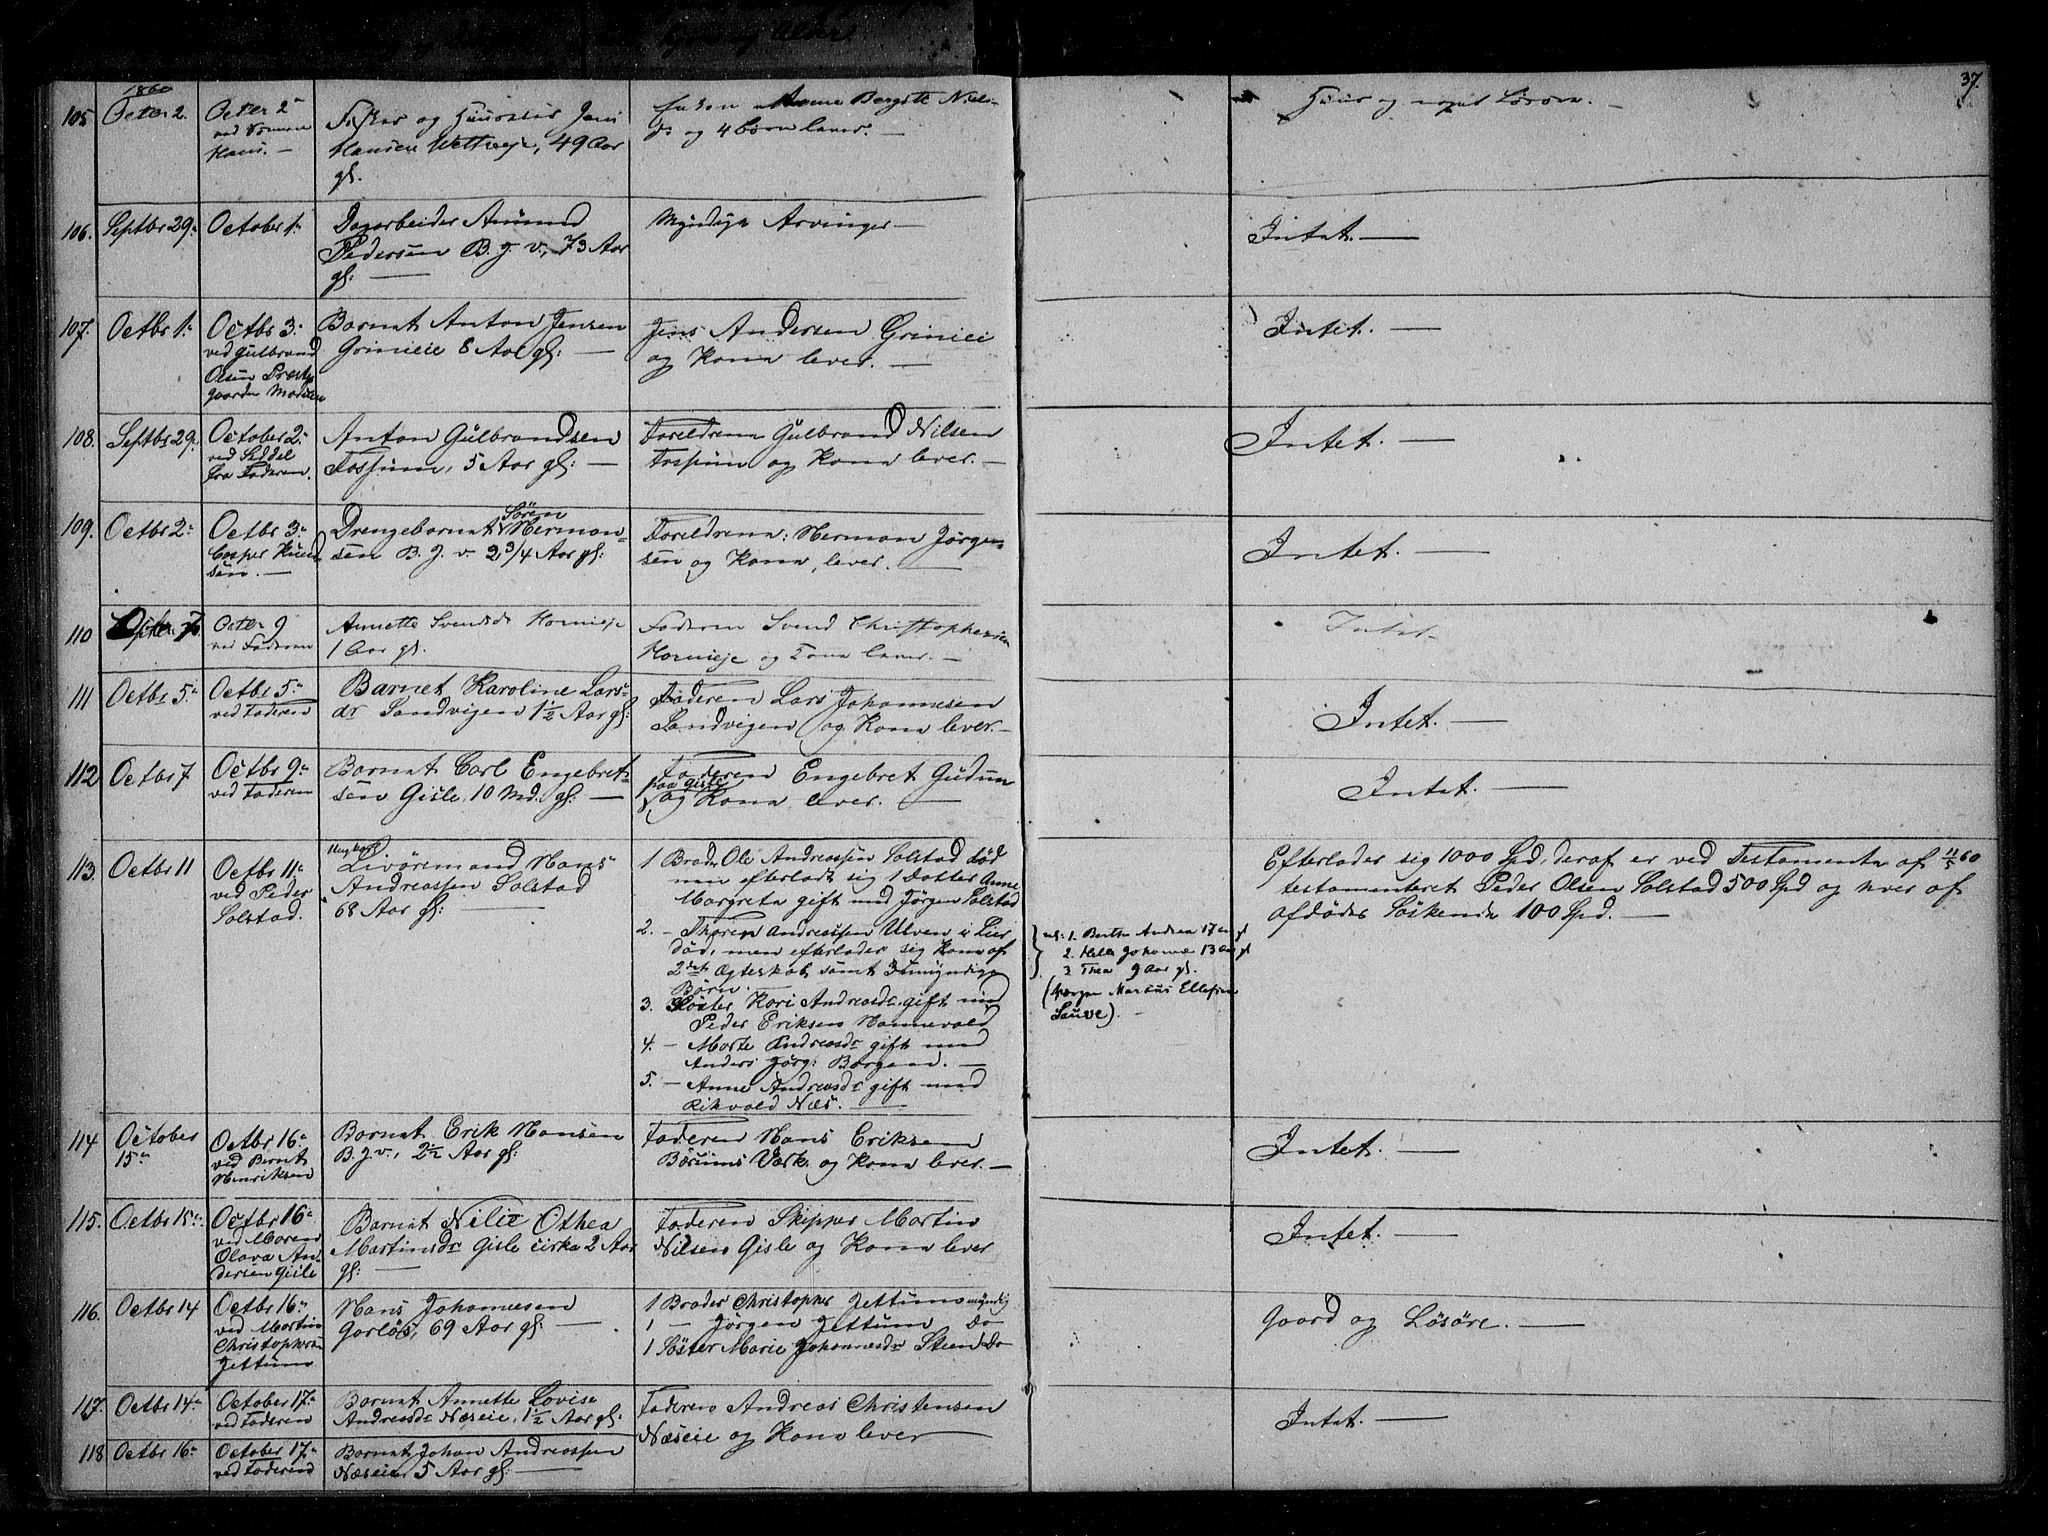 Alder
37.
1860
105
Octer 2.
Octer 2
ved
Hans. —
Fisker og Huuseier Jens
Hansen Wettreeje, 49 Aar
gl.
Enken Anne Bergitte Niels
dr og 4 børn lever. —
Huus og noget Løsøre. —
106.
Septbr 29.
October 1.
Dagarbeider Amund
Pedersen B. J. v., 73 Aar
gl: —
Myndige Arvinger —
Intet. —
107.
Octbr 1.
Octbr 3.
ved Gulbrand
Olsen Præste
gaarden
Barnet Anton Jensen
Grinieie 8 Aar gl: —
Jens Andersen Griniei
og Kone lever. —
Intet. —
108.
Septbr 29.
October 2.
ved Seddel
fra Faderen.
Anton Gulbrandsen
Fossum, 5 Aar gl: —
Foreldrene Gulbrand Nilsen
Fossum og Kone lever. —
Intet. —
109.
Octbr 2.
Octbr 3.
Casper Knud
sen. —
Søren
Drengebarnet Herman=
sen B. J. v. 2 3/4 Aar gl:
Foreldrene: Herman Jørgen=
sen og Kone, lever. —
Intet. —
110
Octer 9
ved Faderen
Annette Svendsdr Hornieje
1 Aar gl.
Faderen Svend Christophersen
Hornieje og Kone lever. —
Intet.
111
Octbr 5.
Octbr 5.
ved Faderen
Barnet Karoline Lars=
dr Sandvigen 1½ Aar gl:
Faderen Lars Johannesen
Sandvigen og Kone lever. —
Intet. —
112
Octbr 7
Octbr 9.
ved Faderen
Barnet Carl Engebret=
sen Gisle, 10 Md. gl: —
Faderen Engebret Gudim
paa Gisle
og Kone lever. —
Intet. —
113.
Octbr 11
Octbr 11.
ved Peder
Solstad.
Ungkarl
Livøremand Hans
Andreassen Solstad
68 Aar gl: —
1 Broder Ole Andreassen Solstad død
men efterladt sig 1 Datter Anne
Margrete gift med Jørgen Solstad
2. — Thoren Andreassen Ulven i Lier
død, men efterlader sig Kone af
2det Ægteskab samt 3 umyndige
Børn. —
3. Søster Kari Andreasdr. gift med
Peder Eriksen Hannevold
4. — Marte Andreasdr gift med
Anders Jørg: Borgen. —
5. — Anne Andreasdr gift med
Rikvald Næs. —
1. Berthe Andrea 17 Aar gl
2. Helle Johanne 13 Aar gl
3 Thea 9 Aar gl.
(Værge Marcus Ellefsen
Sauve). —
Efterlader sig 1000 Spd, deraf er ved Testamente af 11/5 60
testamenteret Peder Olsen Solstad 500 Spd og hver af
afdødes Søskende 100 Spd. —
114
October
15.
Octbr 16.
ved Bernt
Henriksen
Barnet Erik Hansen
B. J. v., 2½ Aar gl:
Faderen Hans Eriksen
Bærums Værk. og Kone lever. —
Intet. —
115.
Octbr 15.
Octbr 16.
ved Maren
Olava An
dersen Gisle
Barnet Nilie Othea
Martinsdr Gisle cirka 2 Aar
gl: —
Faderen Skipper Martin
Nilsen Gisle og Kone lever
Intet. —
116.
Octbr 14
Octbr 16.
ved Martin
Christophersen
Jettum
Hans Johannesen
Gorløs, 69 Aar gl: —
1 Broder Christopher Jettum myndig
1 — Jørgen Jettum Do
1 Søster Marie Johannesdr Steen Do
Gaard og Løsøre. —
117.
Octbr 14.
October 17.
ved Faderen
Barnet Annette Lovise
Andreasdr Næseie, 1½ Aar gl:
Faderen Andreas Christensen
Næseie og Kone lever
Intet. —
118
Octbr 16.
October 17.
ved Faderen
Barnet Johan Andreassen
Næseie 5 Aar gl: —